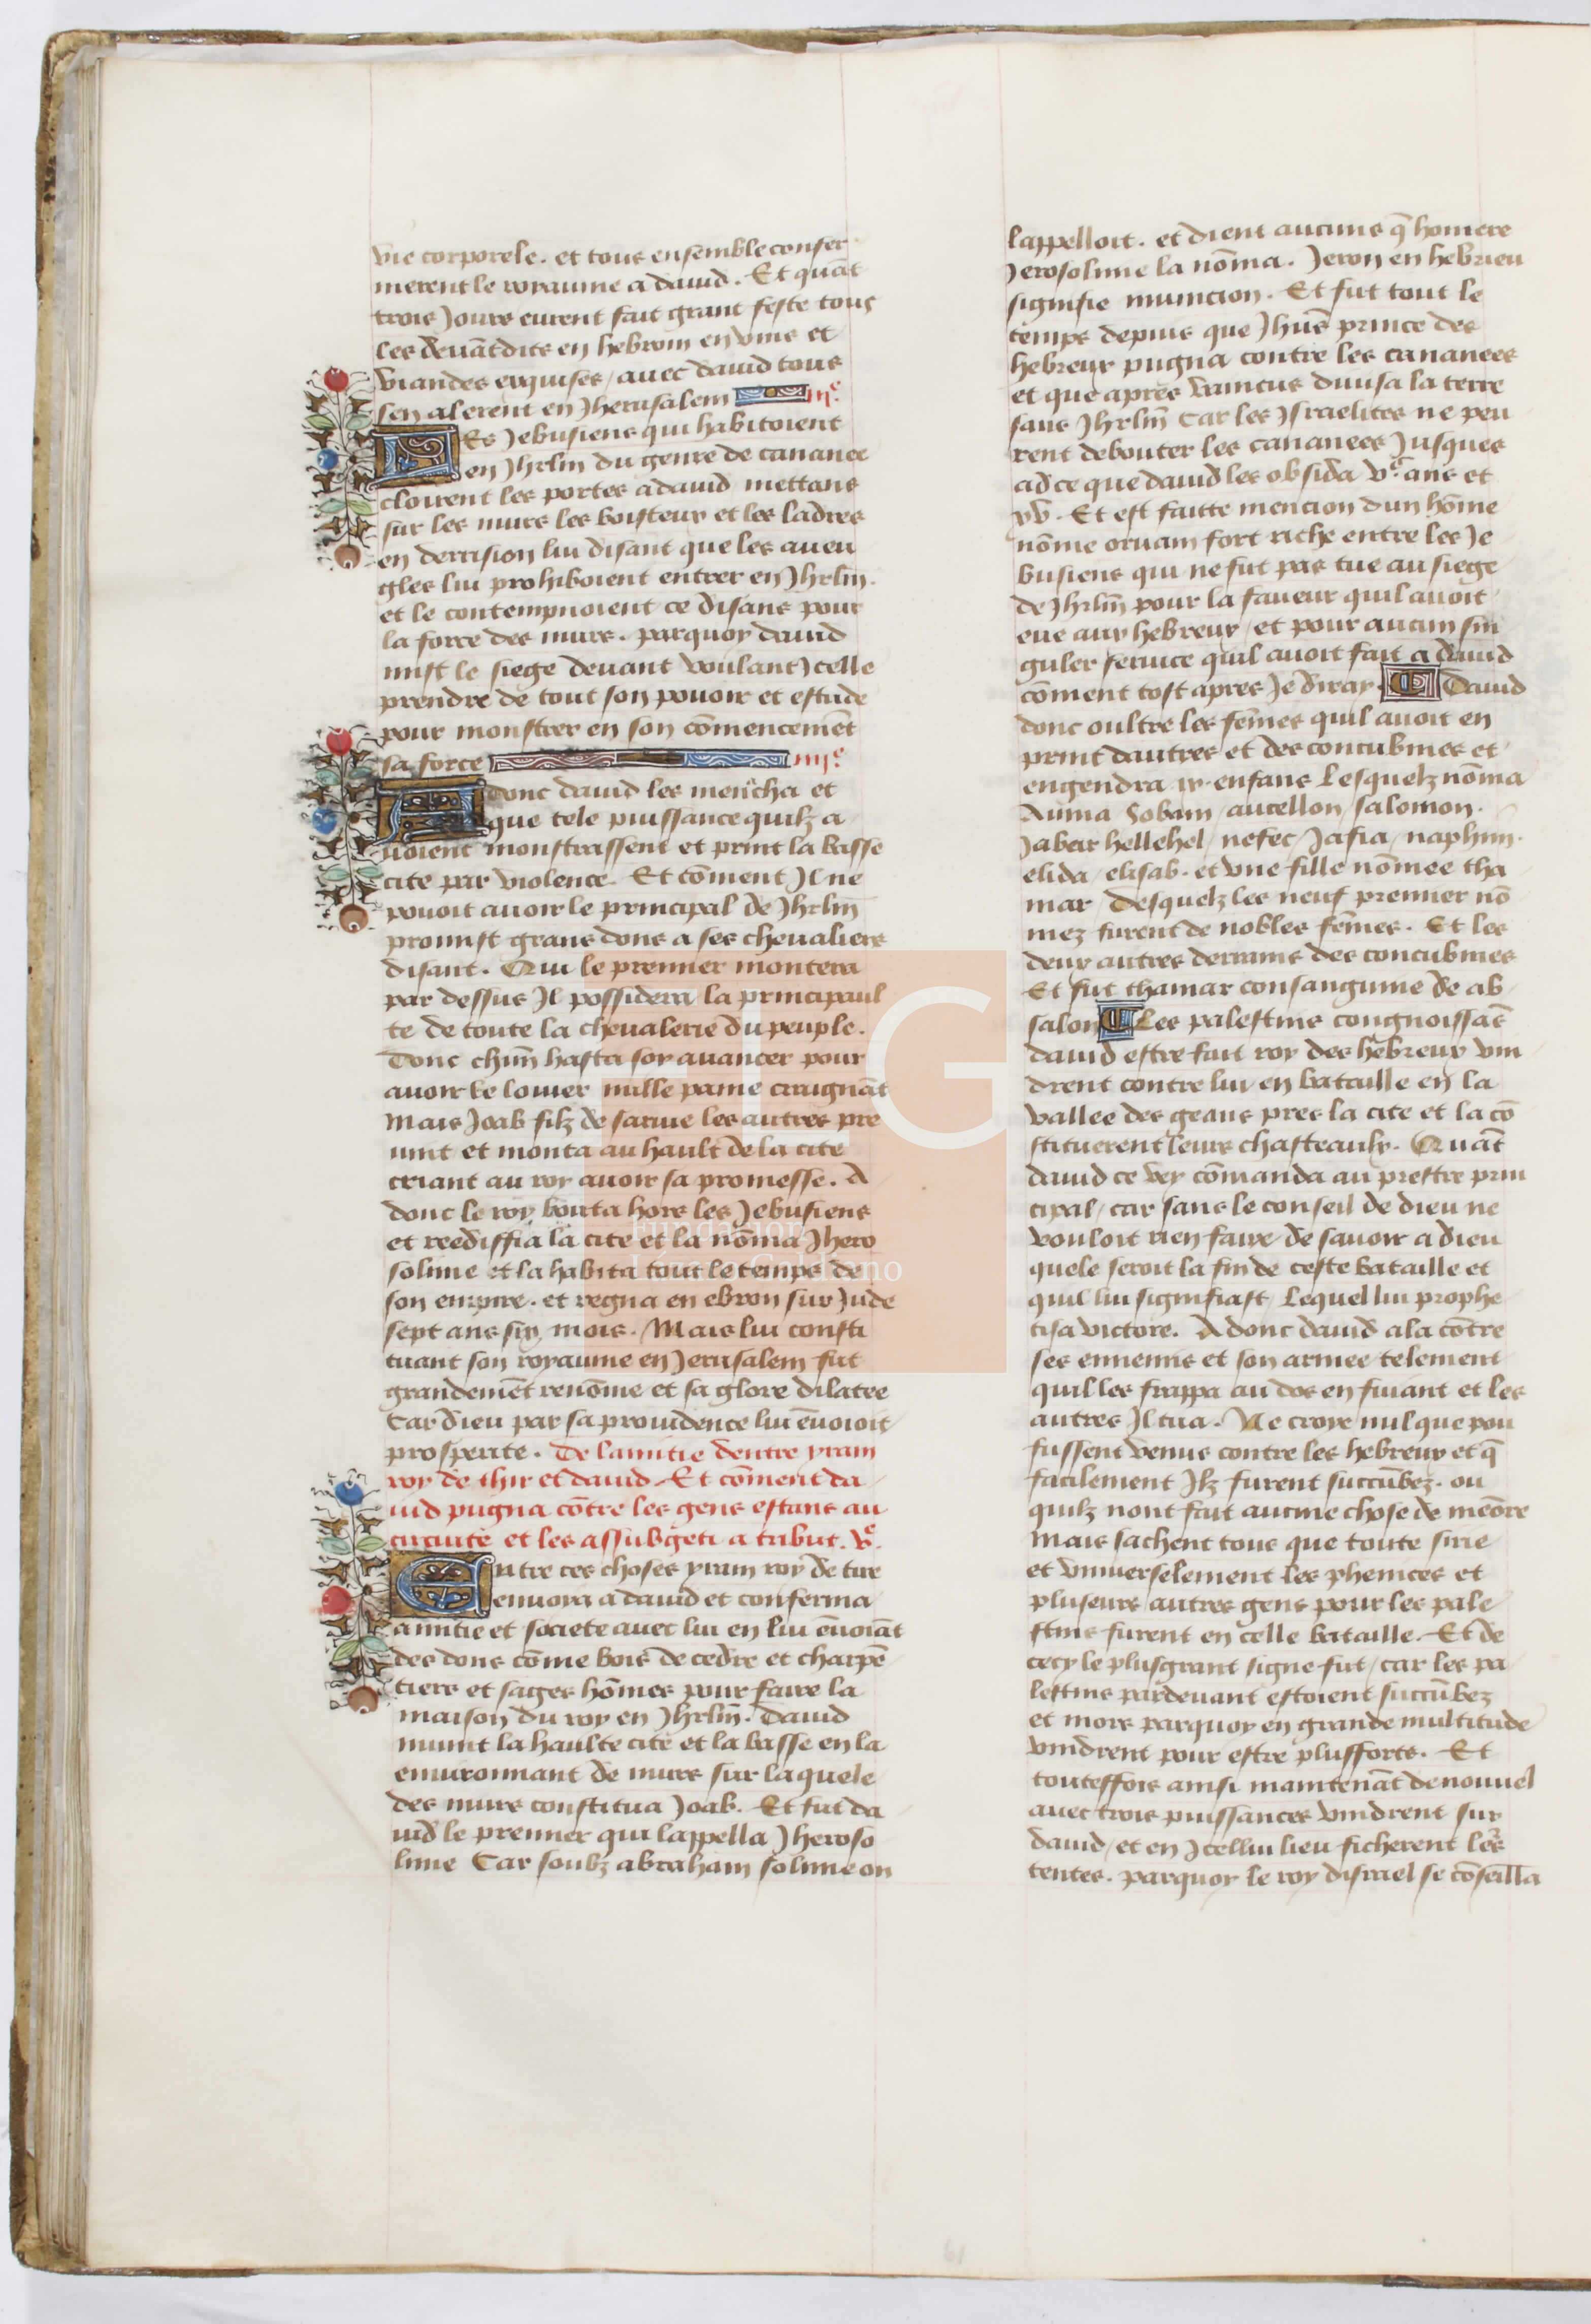 vie corporele. et tous ensemble confer
merent le royaume a dauid. Et quāt
trois Jours eurent fait grant feste tous
les deuātdits en hebrom en vins et
viandes exquises / auec dauid tous
sen alerent en Jherusalem iiiᵉ.
LEs Jebusiens qui habitoient
en Jhrlm du genre de cananee
cloirent les portes a dauid mettans
sur les murs les boisteux et les ladres
en derrision lui disant que les aueu
gles lui prohiboient entrer en Jhrlm.
et le contempnoient ce disans pour
la force des murs. parquoy dauid
mist le siege deuant voulant Jcelle
prendre de tout son pouoir et estude
pour monstrer en son cōmencemēt
sa force iiiiᵉ.
Adonc dauid les mencha et
que tele puissance quilz a
uoient monstrassent et print la basse
cite par violence. Et cōment Jl ne
pouoit auoir le principal de Jhrlm̄
promist grans dons a ses cheualiers
disant. Qui le premier montera
par dessus Jl possidera la principaul
te de toute la cheualerie du peuple.
Donc chūn hasta soy auancer pour
auoir le louier mille paine craignāt
Mais Joab filz de saruie les autres pre
uint et monta au hault de la cite
criant au roy auoir sa promesse. A
donc le roy bouta hors les Jebusiens
et reediffia la cite et la nōma Jhero
solime et la habita tout le temps de
son empire. et regna en ebron sur Jude
sept ans six mois. Mais lui consti
tuant son royaume en Jerusalem fut
grandemēt renōme et sa glore dilatee
Car dieu par sa prouidence lui ēuoioit
prosperite. De lamitie dentre yram
roy de thir et dauid. Et cōment da
uid pugna cōtre les gens estans au
circuite et les assubgeti a tribut. vᵉ.
Entre ces choses yram roy de tire
enuoya a dauid et conferma
amitie et societe auec lui en lui ēuoiāt
des dons cōme bois de cedre et charpē
tiers et sages hōmes pour faire la
maison du roy en Jhrlm̄. Dauid
munit la haulte cite et la basse en la
enuironnant de murs sur laquele
des murs constitua Joab. Et fut da
uid le premier qui lappella Jheroso
lime Car soubz abraham solime on
lappelloit. et dient aucuns q̄ homere
Jerosolime la nōma. Jeron en hebrieu
signifie municion. Et fut tout le
temps depuis que Jhuē prince des
hebreux pugna contre les cananees
et que apres vaincus diuisa la terre
sans Jhrlm̄ Car les Jsraelites ne peu
rent debouter les cananees Jusques
ad ce que dauid les obsida vᶜ. ans et
xv. Et est faitte mencion dun hōme
nōme oruam fort riche entre les Je
busiens qui ne fut pas tue au siege
de Jhrlm̄ pour la faueur quil auoit
eue aux hebreux / et pour aucun sin
guler seruice quil auoit fait a dauid
cōment tost apres Je diray. Dauid
donc oultre les fēmes quil auoit en
print dautres et des concubines et
engendra ix. enfans Lesquelz nōma
Anma Sobam / aucellon / salomon.
Jabar hellehel / nefec / Jafia / naphin.
elida / elisab. et vne fille nōmee tha
mar / Desquelz les neuf premier nō
mez furent de nobles fēmes. Et les
deux autres derrains des concubines
Et fut thamar consanguine de ab
salon Les palestins congnoissās
dauid estre fait roy des hebreux vin
drent contre lui en bataille en la
vallee des geans pres la cite et la cō
stituerent leurs chasteaulx. Quāt
dauid ce vey cōmanda au prestre prin
cipal / car sans le conseil de dieu ne
vouloit rien faire de sauoir a dieu
quele seroit la fin de ceste bataille et
quil lui signifiast / Lequel lui prophe
tisa victore. Adonc dauid ala cōtre
ses ennemis et son armee telement
quil les frappa au dos en fuiant et les
autres Jl tua. Ne croye nul que pou
fussent venus contre les hebreux et q̄
facilement Jlz furent succūbez. ou
quilz nont fait aucune chose de meōre
Mais sachent tous que toute sirie
et vniuerselement les phenices et
pluseurs autres gens pour les pale
stins furent en celle bataille. Et de
cecy le plusgrant signe fut / car les pa
lestins pardeuant estoient succūbez
et mors parquoy en grande multitude
vindrent pour estre plusforts. Et
touteffois ainsi maintenāt denouuel
auec trois puissances vindrent sur
dauid / et en Jcellui lieu ficherent lers
tentes. parquoy le roy disrael se cōseilla
Fundación
Lázaro Galdiano